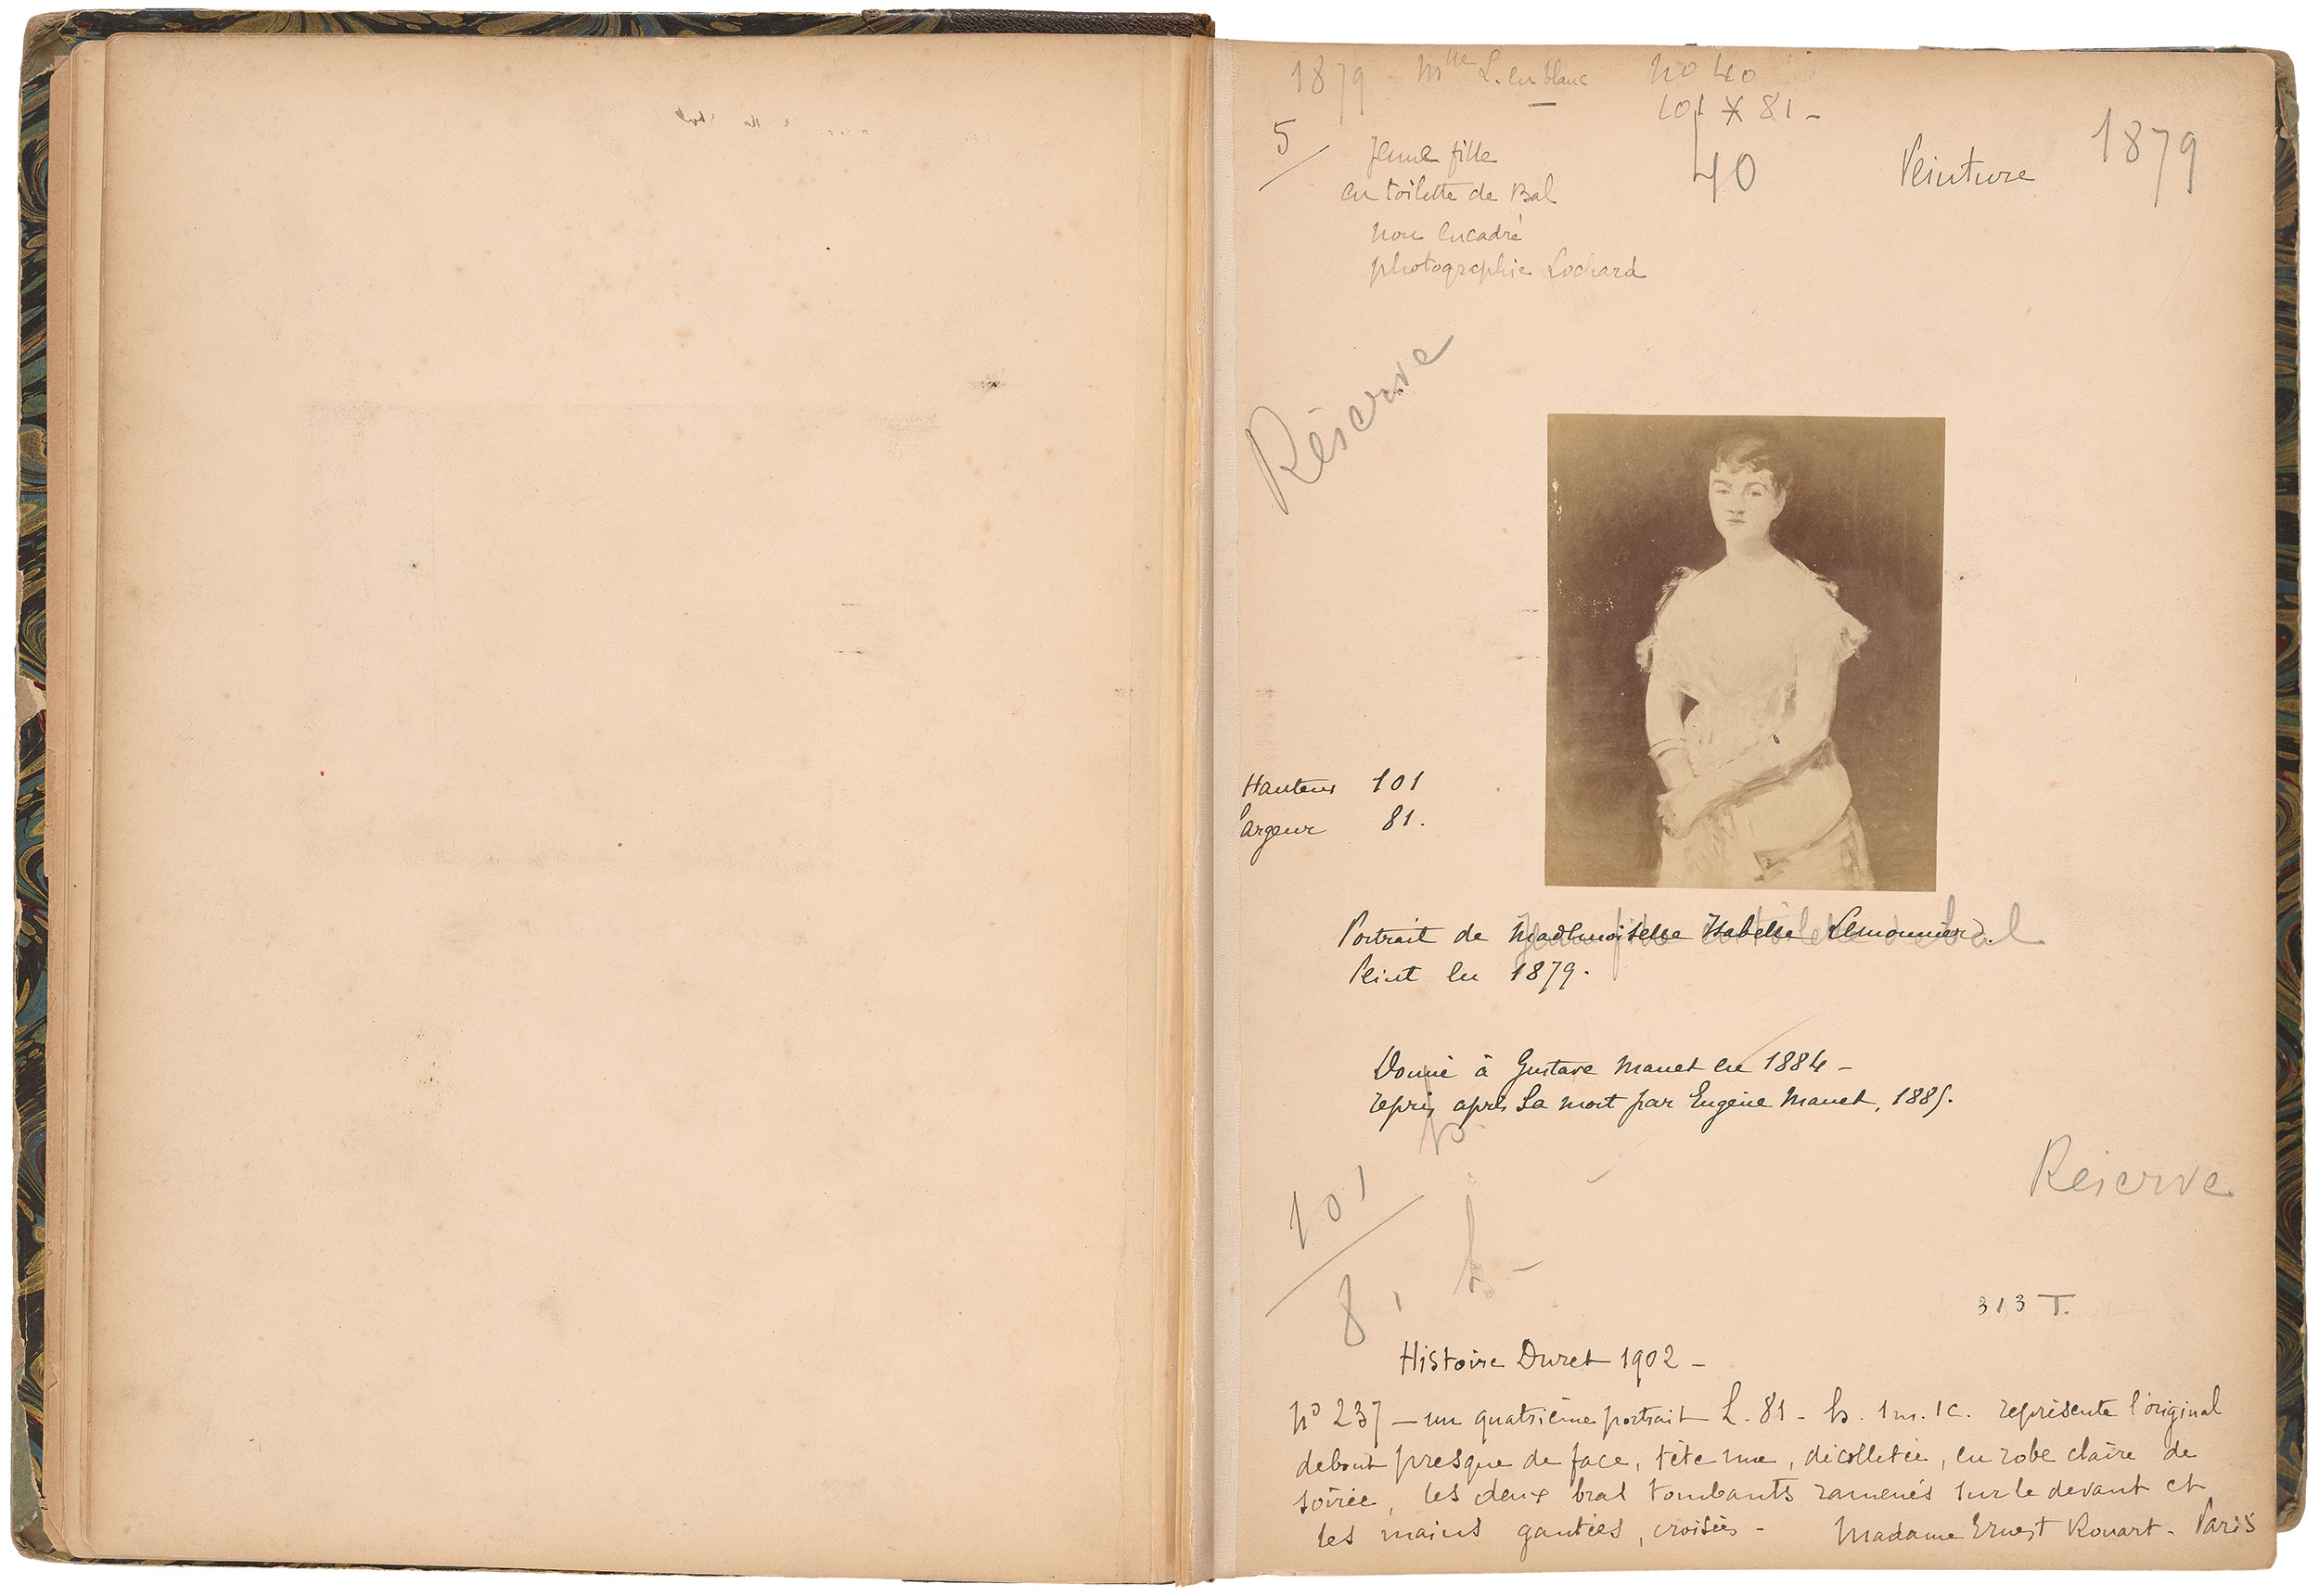 1879 - Mlle L. en blanc no 40
101 x 81 -
5/
40
Peinture
1879
Jeune fille
en toilette de Bal
non encadré
photographie Lochard
Réserve
Hauteur 101
largeur 81.
Portrait de Mademoiselle Isabelle Lemonnier.
Jeune fille en toilette de bal
Peint en 1879.
Donné à Gustave Manet en 1884 -
repris après sa mort par Eugène Manet, 1885.
Réserve
101
81
313 T.
Histoire Duret 1902 -
no 237 - un quatrième portrait L. 81 - h. 1 m. 1c. représente l'original
debout presque de face, tête nue, décolletée, en robe claire de
soirée, les deux bras tombants ramenés sur le devant et
les mains gantées, croisées - Madame Ernest Rouart - Paris